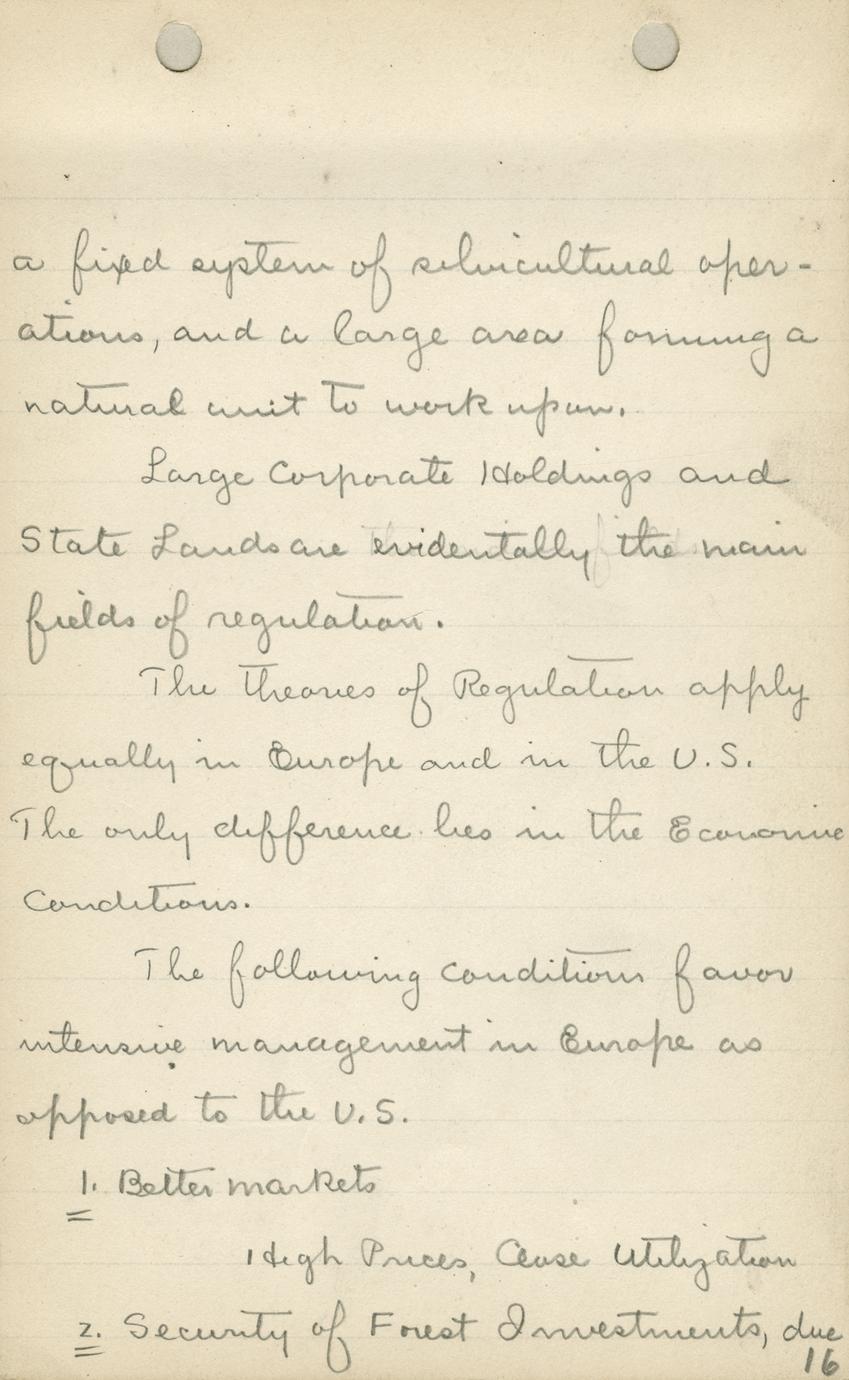 a fixed system of silvicultural oper-
ations, and a large area forming a
natural unit to work upon.
Large Corporate Holdings and
State Lands are evidentally the main
fields of regulation.
The theories of Regulation apply
equally in Europe and in the U.S.
The only difference lies in the Economic
Conditions.
The following conditions favor
intensive management in Europe as
opposed to the U.S.
1. Better markets
High Prices, Close Utilization
2. Security of Forest Investments, due
16